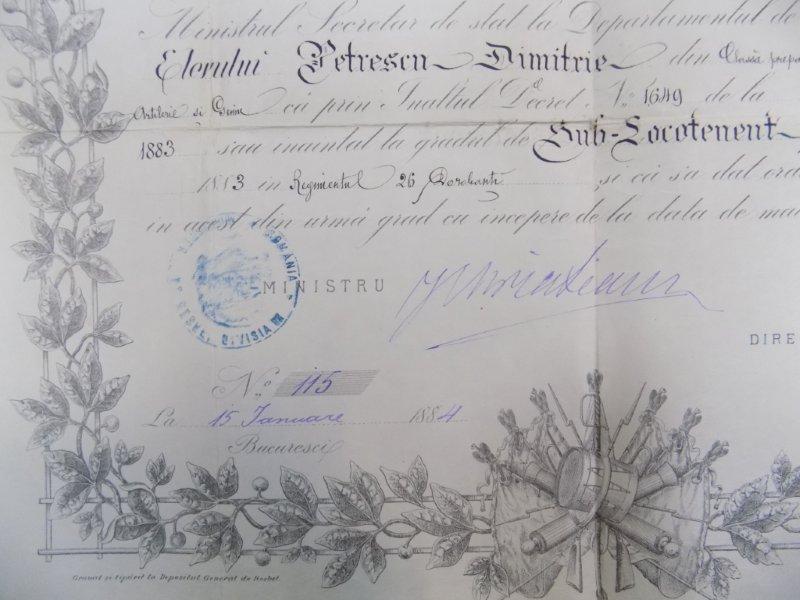 Ministrul Secretar de stat la Departamentul de
Elevului Petrescu Dimitrie din Clasa prepa
Artilerie si Geniu că prin Inaltul Decret No 1649 de la
1883 sau inaintat la gradul de Sub-Locotenent
1883 in Regimentul 26 Dorobanti si că sa dat ord
in acest din urmă grad cu incepere de la data de mai
ROMÂNIA
DIVISIA
MINISTRU
DIRE
No 115
La 15 Ianuare 1884
Bucuresci
Gravat si tipărit la Depositul General de Resbel.